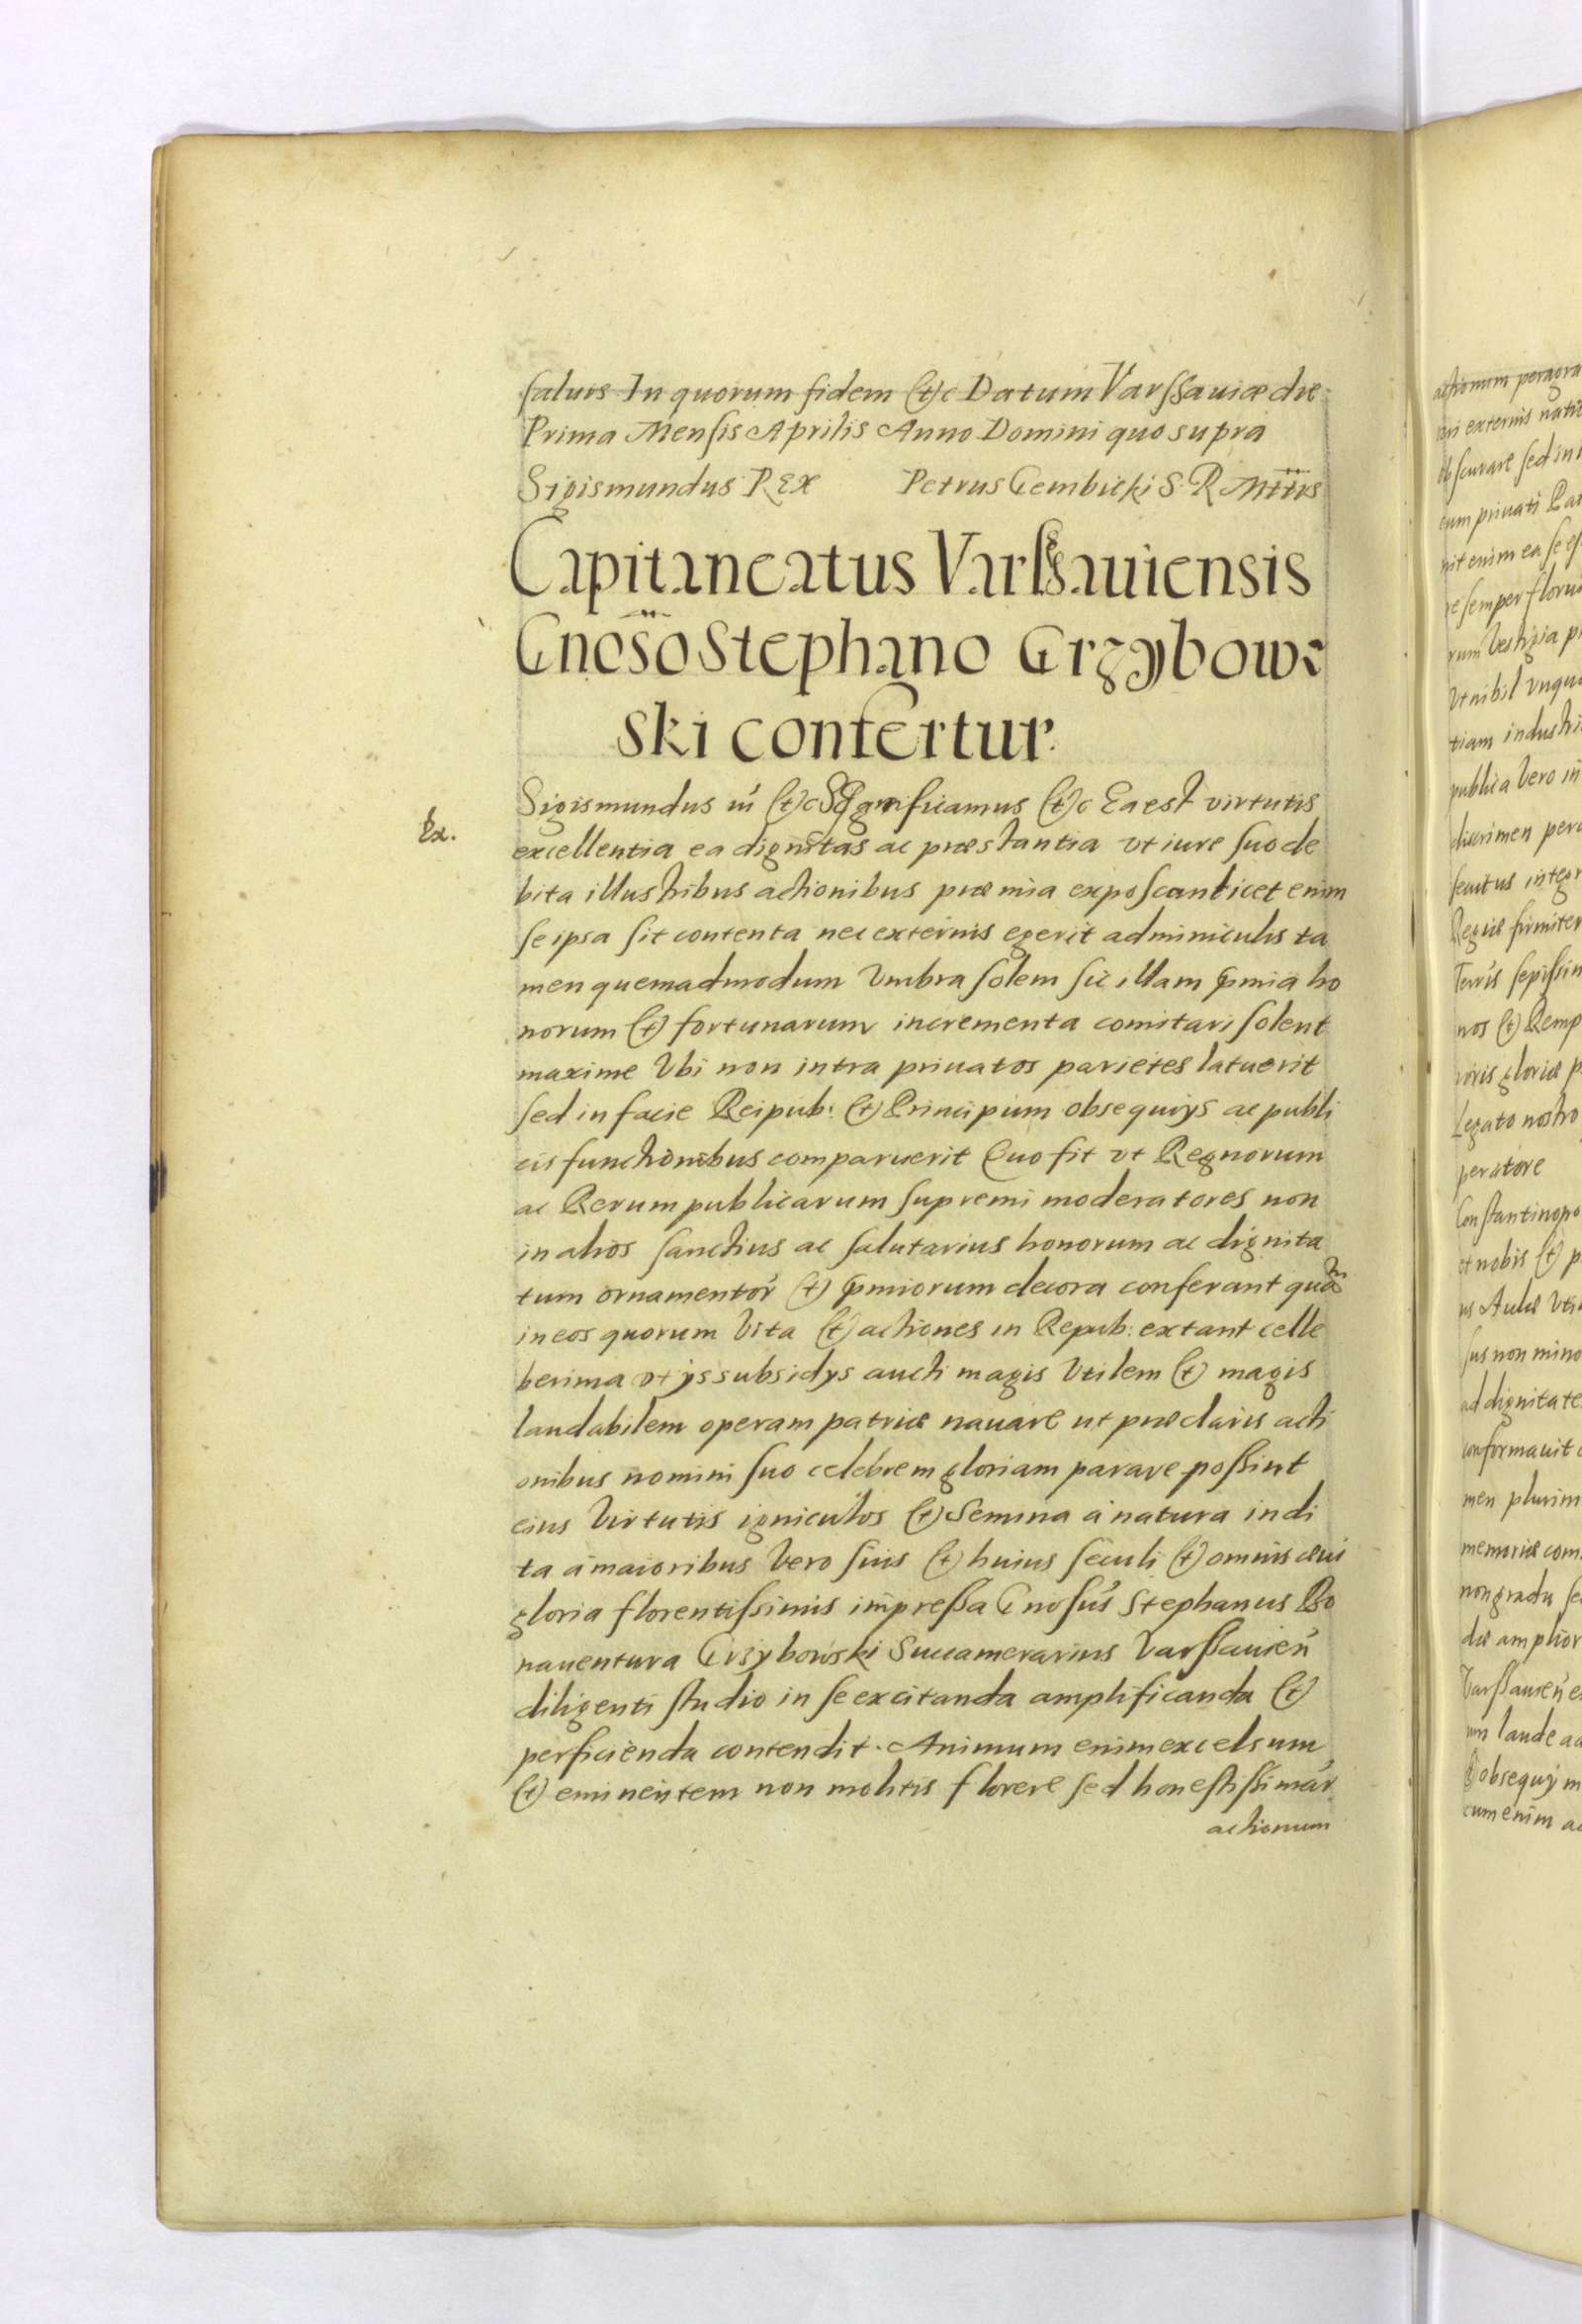 saluis In quorum fidem (et)c Datum Varssauiæ die
Prima Mensis Aprilis Anno Domini quo supra
Sigismundus REx Petrus Gembicki S. R. Mttis
Capitaneatus Varssauiensis
Gnoso Stephano Grzybow:
ski confertur.
Ex.
Sigismundus iii (et)c Significamus (et)c Ea est virtutis
excellentia ea dignitas ac præstantia vt iure suo de
bita illustribus actionibus præmia exposcant licet enim
se ipsa sit contenta nec externis egerit adminiculis ta
men quemadmodum Vmbra solem sic illam pmia ho
norum (et) fortunarum incrementa comitari solent
maxime Vbi non intra priuatos parietes latuerit
sed in facie Reipub: (et) Principum obsequiys ac publi
cis functionibus comparuerit Quo fit vt Regnorum
ac Rerumpublicarum supremi moderatores non
in alios sanctius ac salutarius honorum ac dignita
tum ornamentor (et) pmiorum decora conferant quam
in eos quorum Vita (et) actiones in Repub: extant celle
berima vt ys subsidys aucti magis Vtilem (et) magis
laudabilem operam patriæ nauare ut præclaris acti
onibus nomini suo celebrem gloriam parare possint
eius Virtutis igniculos (et) Semina á natura indi
ta á maioribus Vero suis (et) huius seculi (et) omnis æui
gloria florentissimis impressa Gnosus Stephanus Bo
nauentura Grzybowski Succamerarius Varssauien
diligenti studio in se excitanda amplificanda (et)
perficienda contendit. Animum enim excelsum
(et) eminentem non molitis florere sed honestissimar
actionum
actionum peragra
obscurare sed in
cum priuati Par
nit enim ea se
re semper floru
rum Vestigia p
Vt nibil vnqu
tiam industri
publica Vero in
discrimen per
secutus integr
Regiæ firmiter
sepissim
nos (et) Remp
gloriæ p
Legato nostro
peratore
Constantinopo
et nobis (et) p
us Aulæ Vti
sus non mino
ad dignitate
conformauit
men plurim
memoriæ com
non gradu se
dæ amplior
Varssauien e
laude ad
obsequy m
cum enim ac